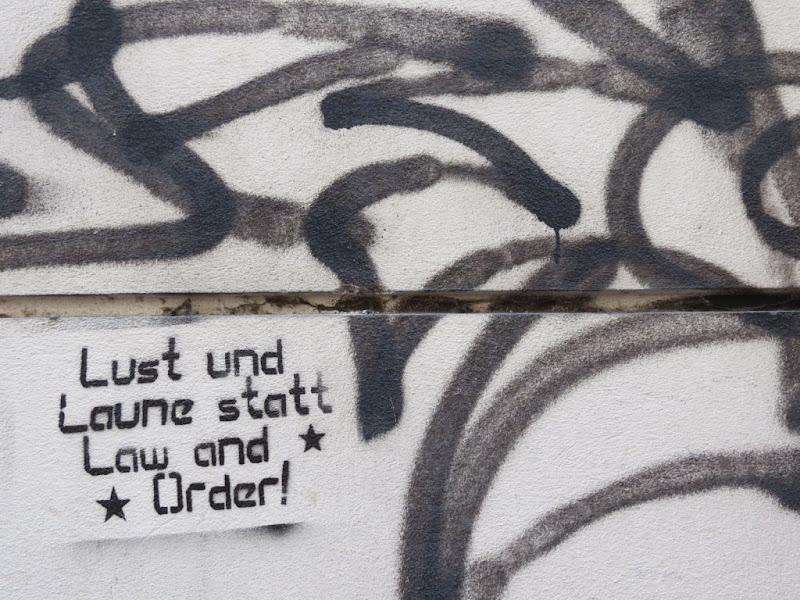 Lust und
Laune statt
Law and
Order!